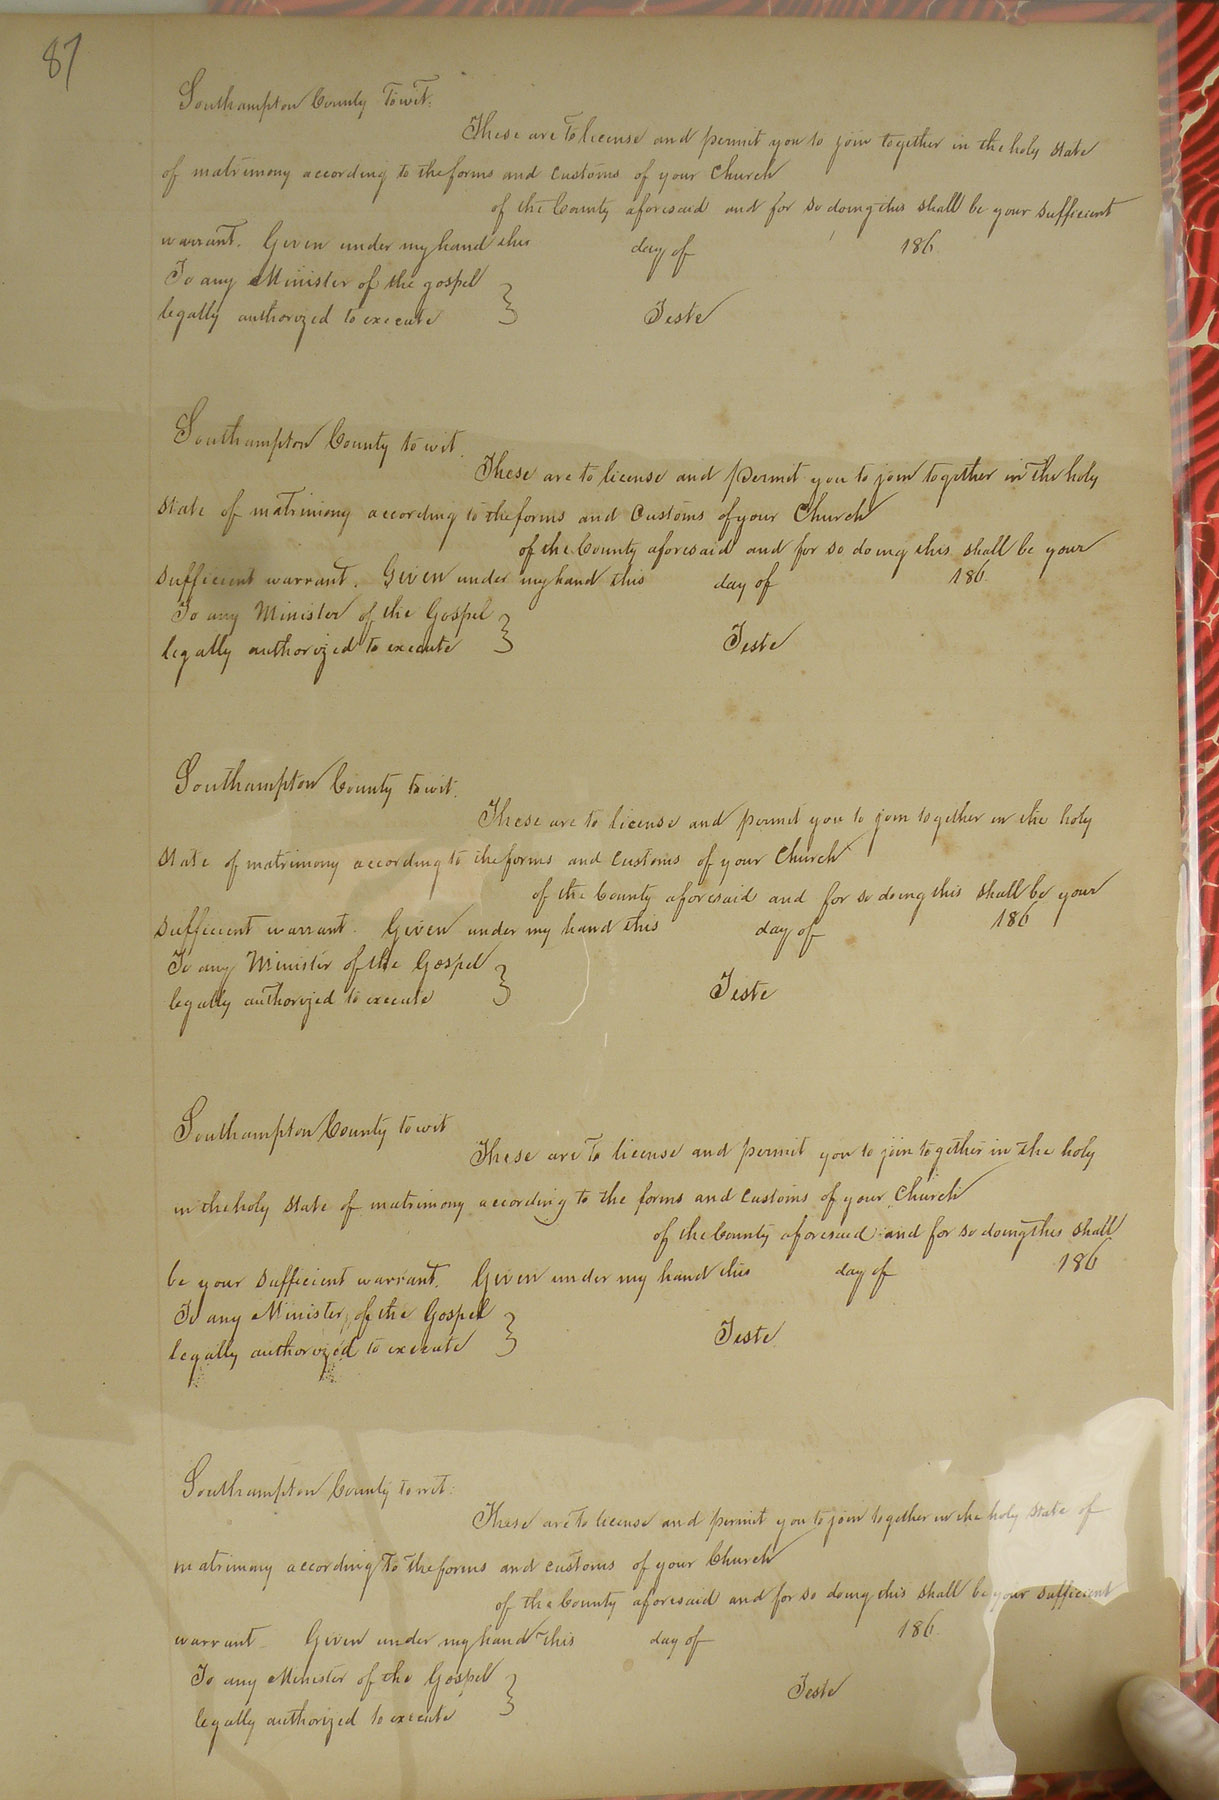 87
Southampton County Towit.
These are To license and permit you to join together in the holy state
of matrimony according to the forms and customs of your Church
of the County aforesaid and for so doing this shall be your sufficient
warrant. Given under my hand this day of 186
To any Minister of the gospel
legally authorized to execute } Teste
Southampton County to wit.
These are to license and permit you to join together in the holy
state of matrimony according to the forms and Customs of your Church
of the County aforesaid and for so doing this shall be your
sufficient warrant. Given under my hand this day of 186
To any Minister of the Gospel
legally authorized to execute } Teste
Southampton County to wit.
These are to license and permit you to join together in the holy
state of matrimony according to the forms and customs of your Church
of the County aforesaid and for so doing this shall be your
sufficient warrant. Given under my hand this day of 186
To any Minister of the Gospel
legally authorized to execute } Teste
Southampton County to wit
These are To license and permit you to join together in the holy
in the holy state of matrimony according to the forms and customs of your Church
of the County aforesaid and for so doing this shall
be your sufficient warrant. Given under my hand this day of 186
To any Minister of the Gospel
legally authorized to execute } Teste
Southampton County to wit.
These are to license and permit you to join together in the holy state of
matrimony according To the forms and customs of your Church
of the County aforesaid and for so doing this shall be your sufficient
warrant Given under my hand this day of 186
To any Minister of the Gospel
legally authorized to execute } Teste